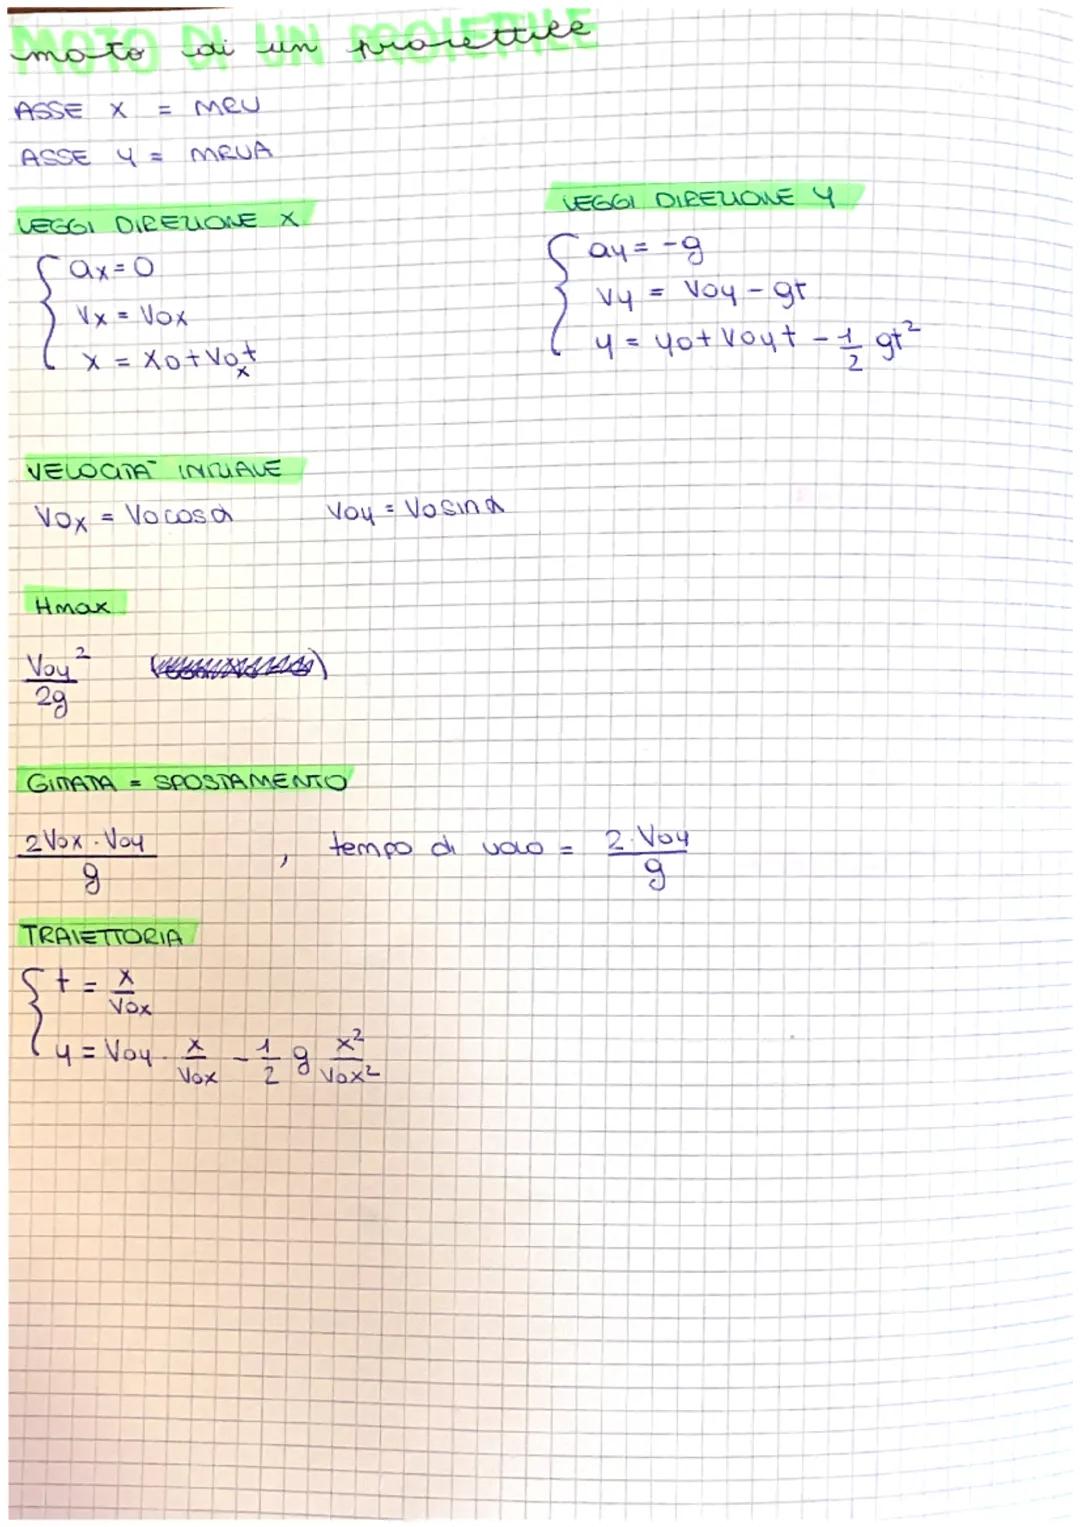 moto di un proiettile
MOTO DI UN PROIETTILE
ASSE X = MRU
ASSE Y = MRUA
LEGGI DIREZIONE X
ax = 0
Vx = V0x
x = x0 + V0x t
LEGGI DIREZIONE Y
ay = -g
Vy = V0y - gt
y = y0 + V0y t - 1/2 gt²
VELOCITÀ INIZIALE
V0x = V0 cos α V0y = V0 sin α
Hmax
V0y²/2g
GITTATA = SPOSTAMENTO
2V0x · V0y/g , tempo di volo = 2·V0y/g
TRAIETTORIA
t = x/V0x
y = V0y · x/V0x - 1/2 g x²/V0x²